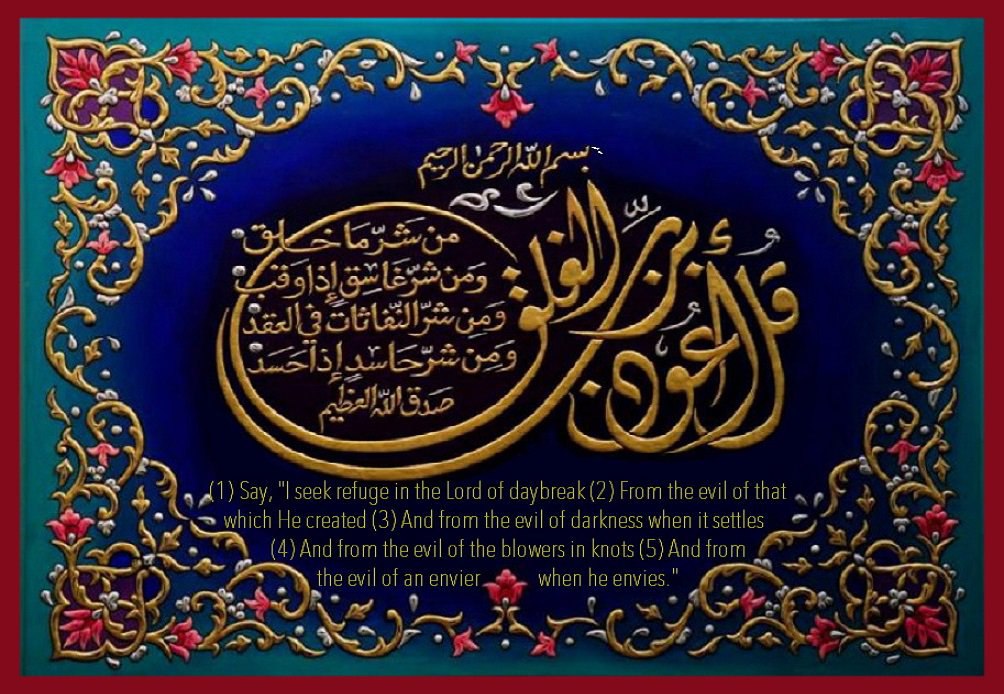 بسم الله الرحمن الرحيم
قل أعوذ برب الفلق
من شر ما خلق
وَمَن شرّ غَاسِقٍ إِذا وَقب
وَمِن شرّ النّفاثات في العقد
وَمِن شرّ حَاسدٍ إِذا حَسَد
صدق الله العظيم
(1) Say, "I seek refuge in the Lord of daybreak (2) From the evil of that
which He created (3) And from the evil of darkness when it settles
(4) And from the evil of the blowers in knots (5) And from
the evil of an envier when he envies."